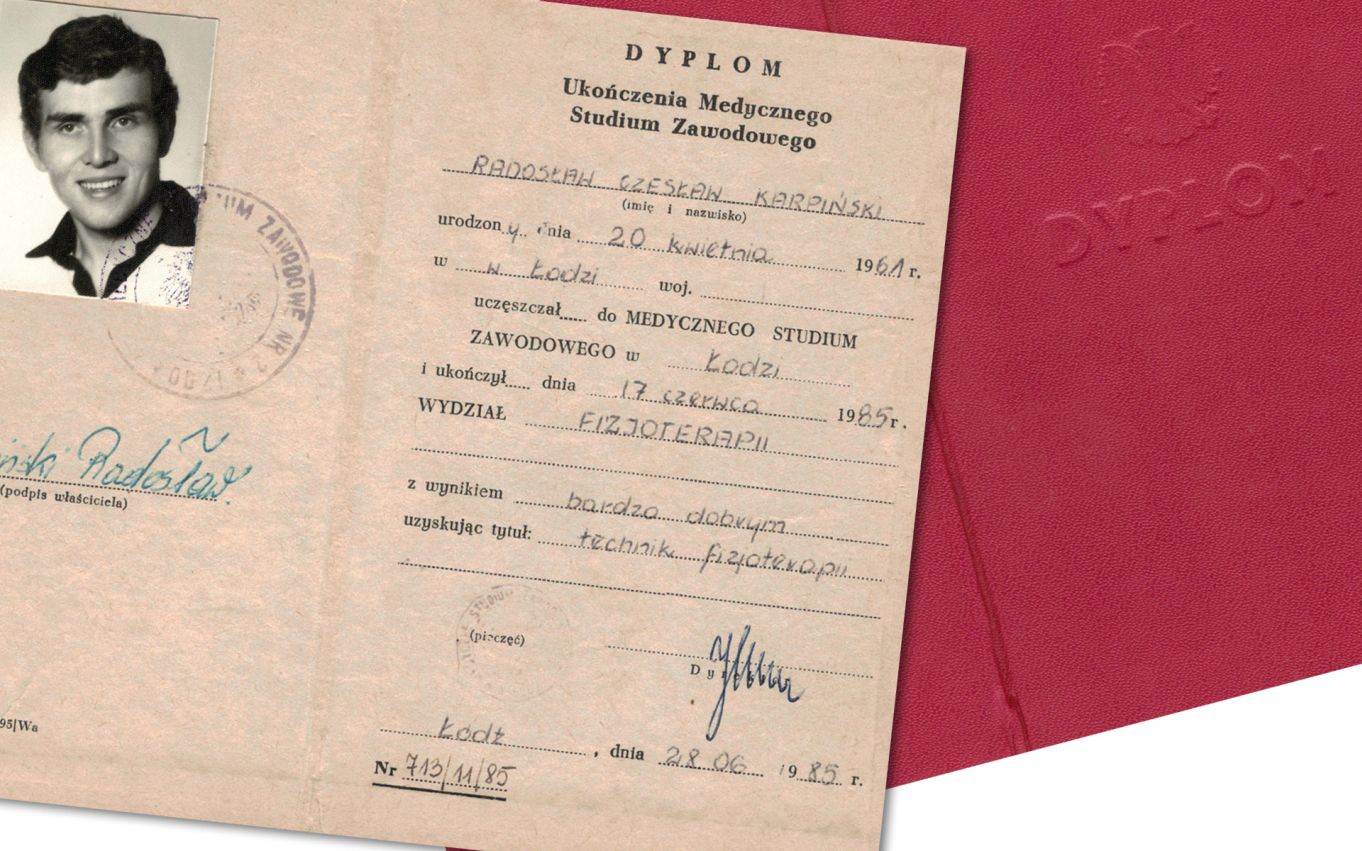 DYPLOM
Ukończenia Medycznego
Studium Zawodowego
RADOSŁAW CZESŁAW KARPIŃSKI
(imię i nazwisko)
urodzony dnia 20 kwietnia 1961 r.
w w Łodzi woj.
uczęszczał do MEDYCZNEGO STUDIUM
ZAWODOWEGO w Łodzi
i ukończył dnia 17 czerwca 1985 r.
WYDZIAŁ FIZJOTERAPII
z wynikiem bardzo dobrym
uzyskując tytuł: technik fizjoterapii
(pieczęć)
Łódź, dnia 28 06 1985 r.
Nr 713/11/85
UM ZAWODOWE NR 2 * ŁODZI
ński Radosław
(podpis właściciela)
95/Wa
STUDIUM
DYPLOM